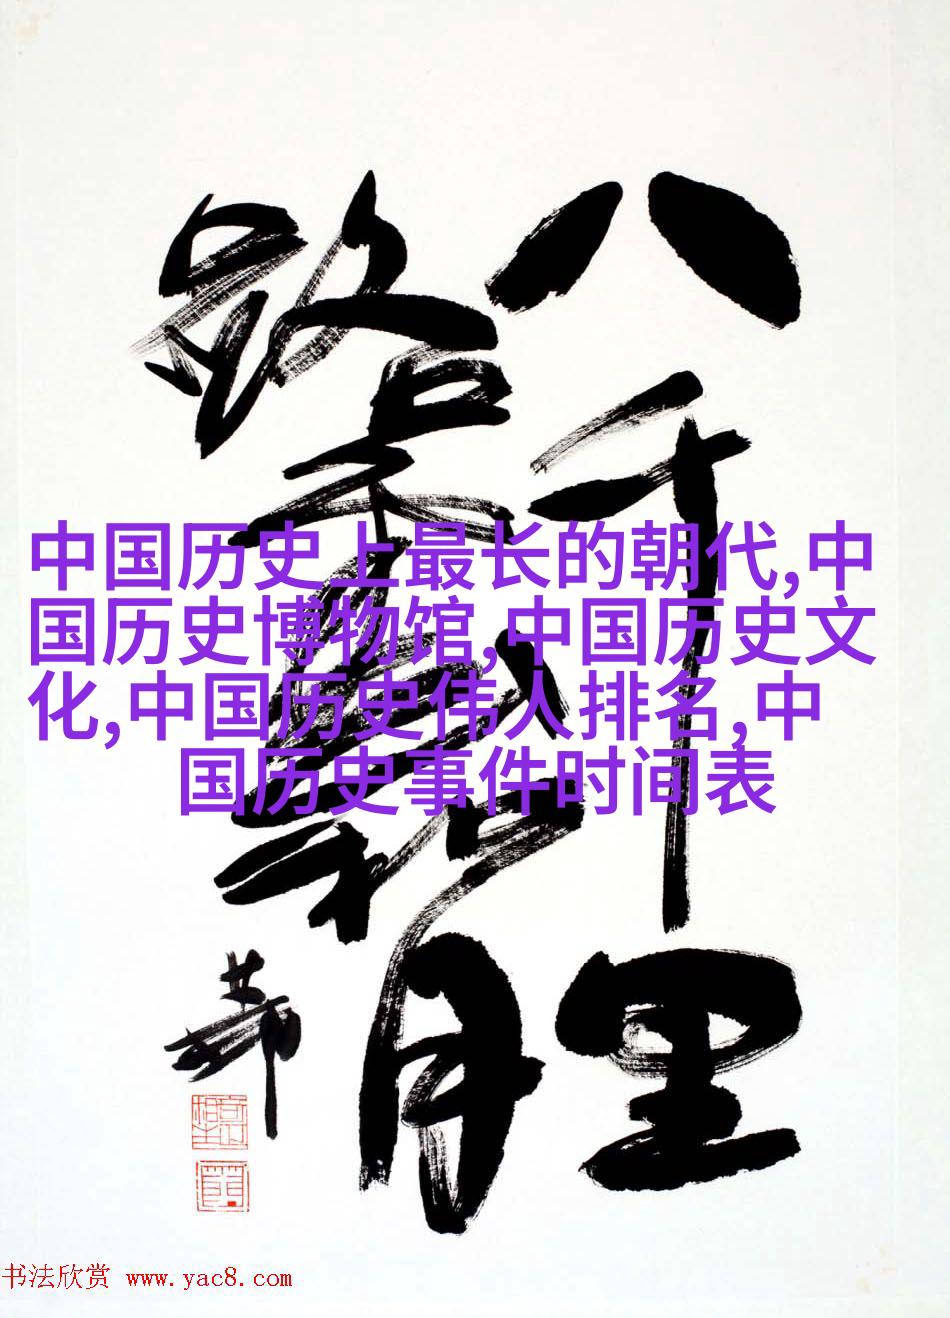 八千里
路雲和月
中国历史上最长的朝代,中
国历史博物馆,中国历史文
化,中国历史伟人排名,中
国历史事件时间表
书法欣赏 www.yac8.com